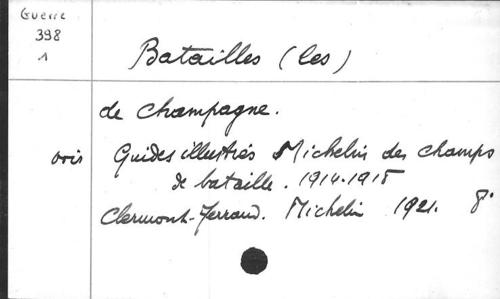 Guerre
398
1
Batailles (les)
de Champagne.
voir Guides illustrés Michelin des champs
de bataille. 1914.1918
Clermont-Ferrand. Michelin 1921. 8°